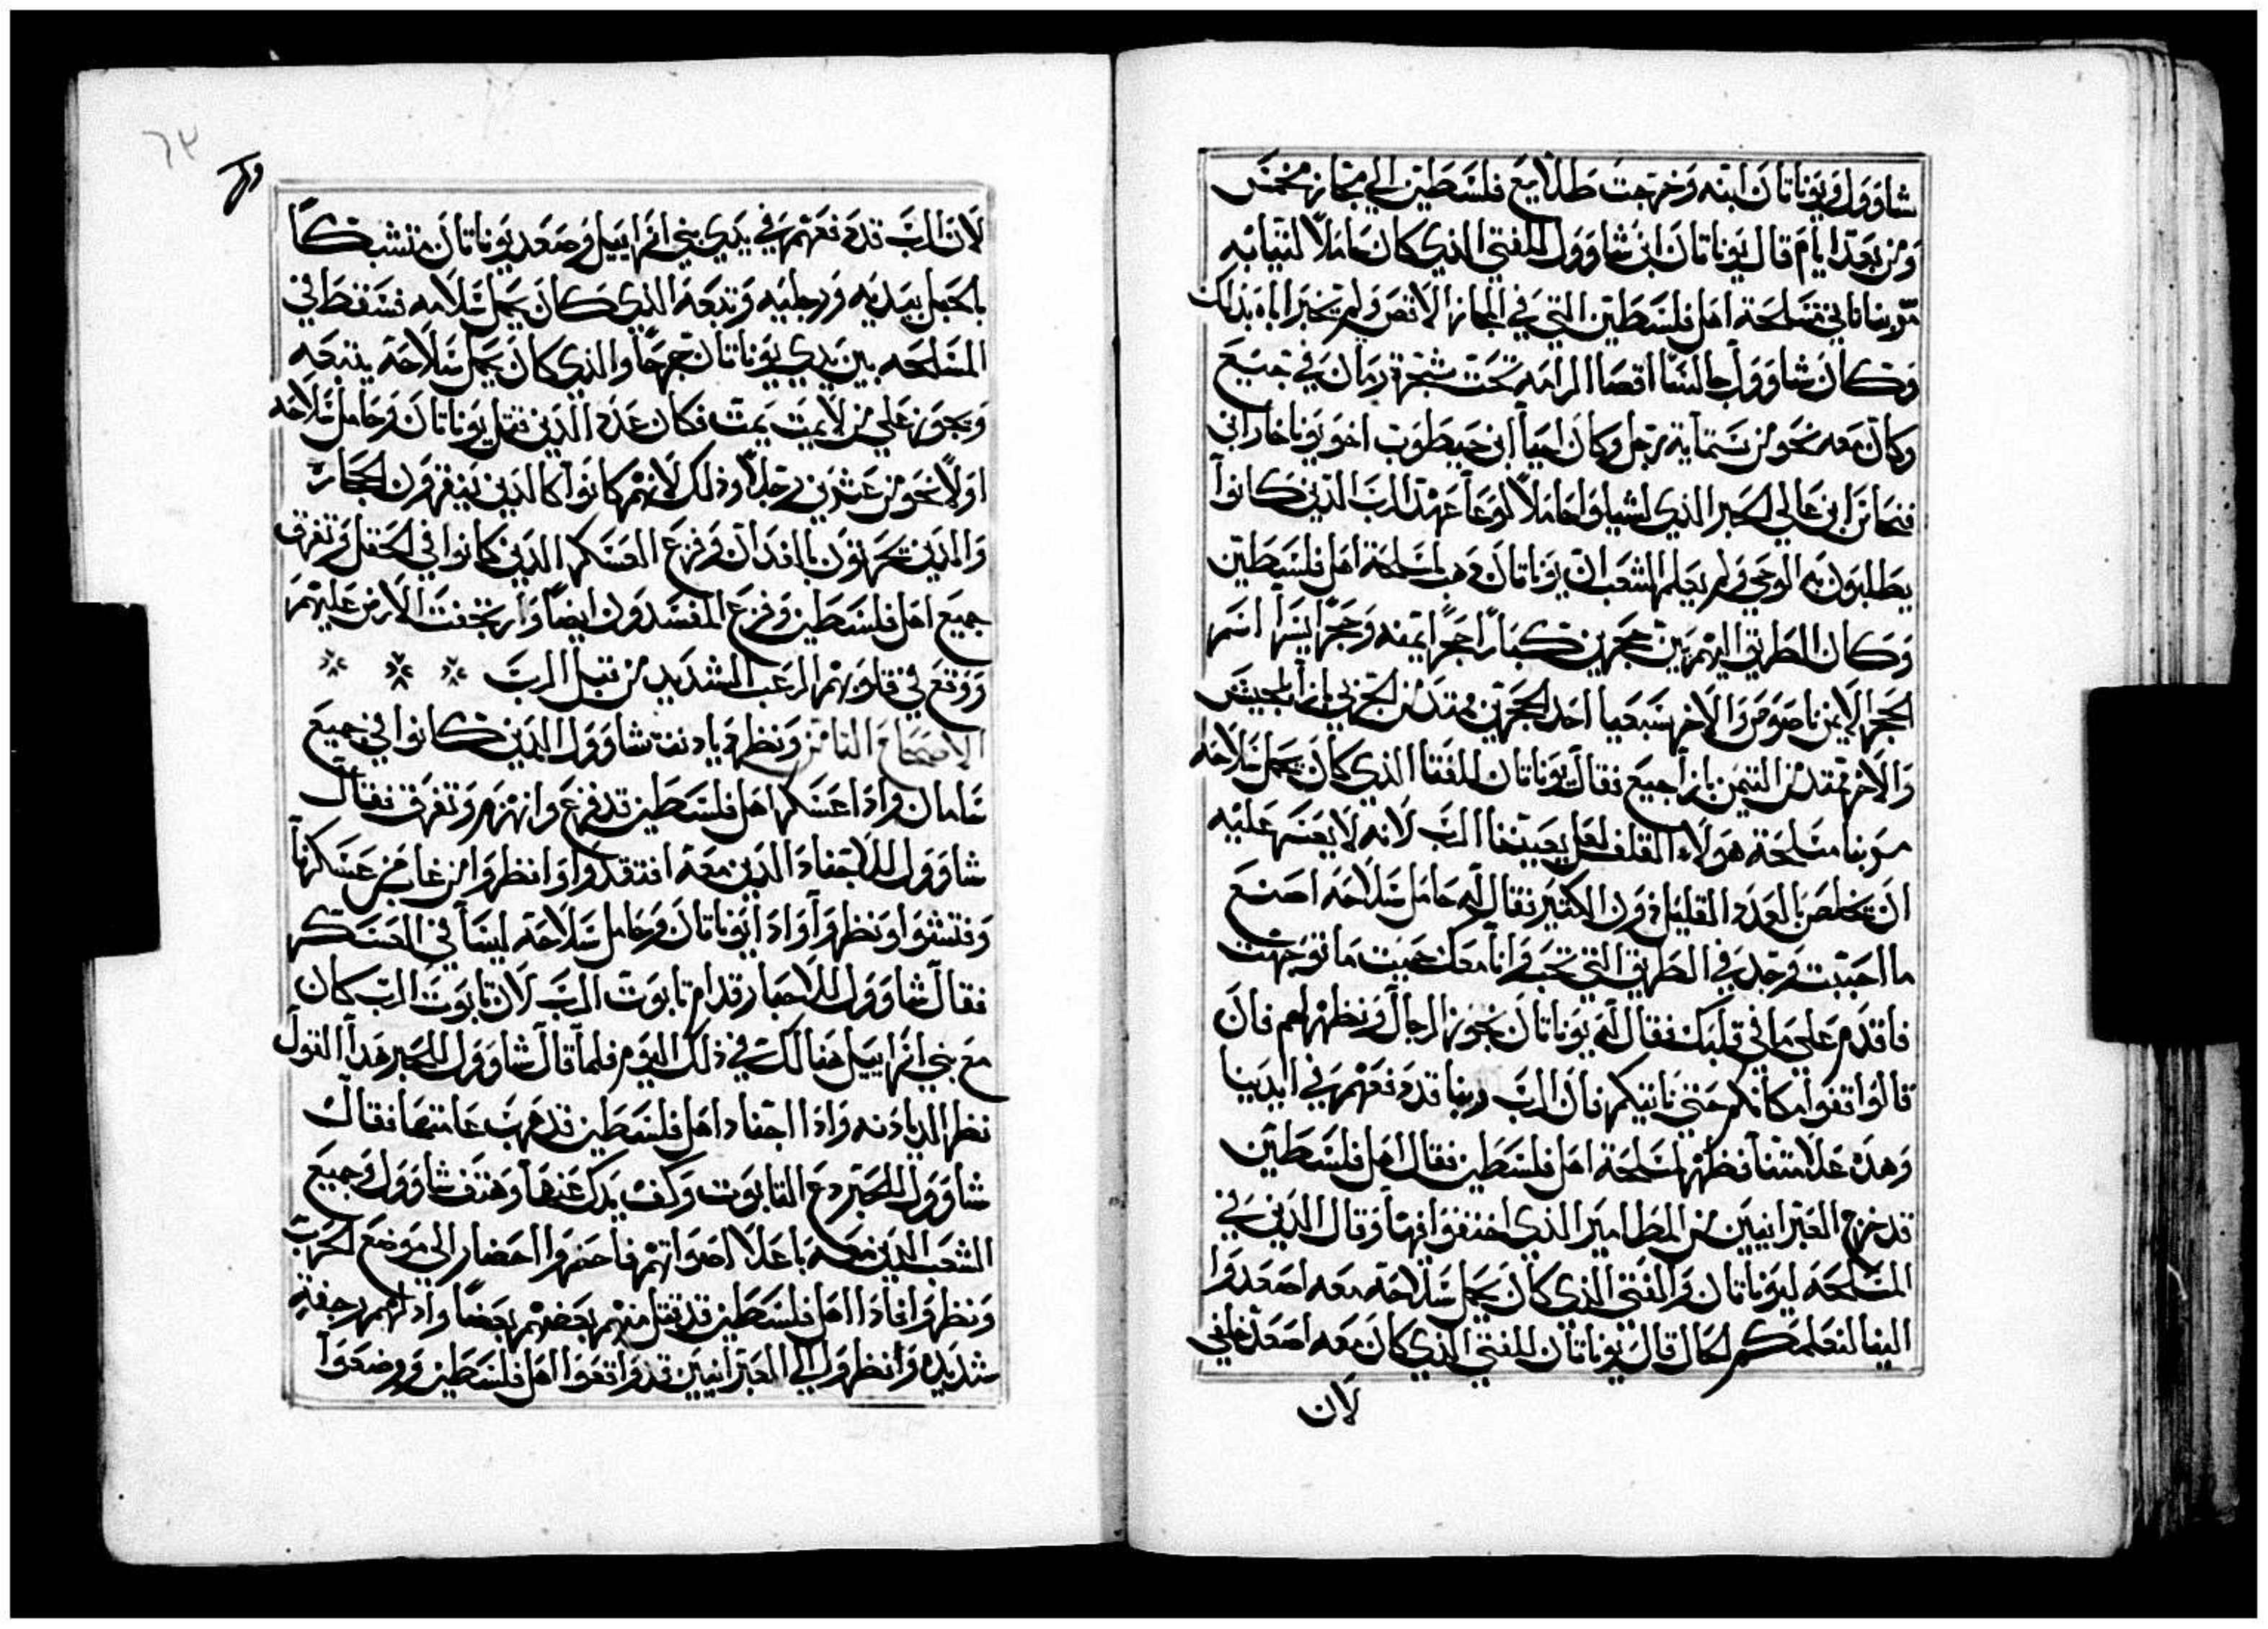 شاوول ويوناتان ابنه وخرجت طلايع فلسطين الي مجاز مخمس
ومن بعد ايام قال يوناتان ابن شاوول للفتي الذي كان حاملا لثيابه
مر بنا ناتي مسلحة اهل فلسطين التي في المجاز الاقصي ولم يخبر اباه بذلك
وكان شاوول جالسا اقصا الرامه تحت شجرة رمان في جبع
وكان معه نحو من ستماية رجل وكان احيا ابن حيطوب اخو يوناخار ابن
فنحاس ابن عالي الحبر الذي لشيلو حاملا لوعا عهد الرب الذين كانوا
يطلبون به الوحي ولم يعلم الشعب ان يوناتان ذهب لمسلحة اهل فلسطين
وكان الطريق اليهم بين حجرين كبار احجر ايمنه وحجر ايسرا اسم
الحجر الايمن ناصوص والاخر سبعيا احد الحجرين ممتد من الجربي بازا الجيش
والاخر ممتد من التيمن بازا جبيع فقال يوناتان للفتا الذي كان يحمل سلاحه
مر بنا مسلحة هولاء القلف لعل يعيننا الرب لانه لا يعسر عليه
ان يخلص بالعدد القليل دون الكثير فقال له حامل سلاحه اصنع
ما احببت وجد في الطريق التي تحب وانا معك حيث ما توجهت
فاقدم علي ما في قلبك فقال له يوناتان نجوز الرجال ونظهر لهم فان
قالوا قفوا مكانكم حتي ناتيكم فان الرب ربنا قد دفعهم في ايدينا
وهذه علامتنا فظهر لمسلحة اهل فلسطين فقال اهل فلسطين
قد خرج العبرانيين من المطامير الذي اختفوا فيها وقال الذين في
المسلحه ليوناتان والفتي الذي كان يحمل سلاحه معه اصعدوا
الينا لنعلمكم الحال قال يوناتان للفتي الذي كان معه اصعد خلفي
لان
٦٣
لان الرب قد دفعهم في يدي بني اسراييل وصعد يوناتان متشبكا
بالجبل بيديه ورجليه وتبعه الذي كان يحمل سلاحه فسقط في
المسلحه بين يدي يوناتان جرحا والذي كان يحمل سلاحه يتبعه
ويجوز علي من لا يمت يمت فكان عدد الذين قتل يوناتان وحامل سلاحه
اولا نحو من عشرين رجلا وذلك لانهم كانوا كالذين ينقرون الحجاره
والذين يحرثون بالفدان وفزع العسكر الذين كانوا في الحقل وتفرق
جميع اهل فلسطين وفزع المفسدون ايضا وارتجفت الارض عليهم
ووقع في قلوبهم الرعب الشديد من قبل الرب
الاصحاح الثامن ونظر ديادنة شاوول الذين كانوا في جميع
نامان واذا عسكر اهل فلسطين قد فزع وانهزم وتفرق فقال
شاوول للاجناد الذين معه افتقدوا وانظروا من غاب من عسكرنا
وفتشوا ونظروا واذا يوناتان وحامل سلاحه ليسا في العسكر
فقال شاوول للاحبار قدام تابوت الرب لان تابوت الرب كان
مع بني اسراييل هنالك في ذلك اليوم فلما قال شاوول للحبر هذا القول
نظر الديادنه واذا اجناد اهل فلسطين قد هرب عامتها فقال
شاوول للحبر دع التابوت وكف يدك عنها وهتف شاوول وجميع
الشعب الذين معه باعلا اصواتهم فاحضروا احضار الي موضع الحرب
ونظروا فاذا اهل فلسطين قد تقتل منهم بعضهم بعضا واذ لهم رجفة
شديده وانظروا الي العبرانيين قد واقعوا اهل فلسطين ووضعوا